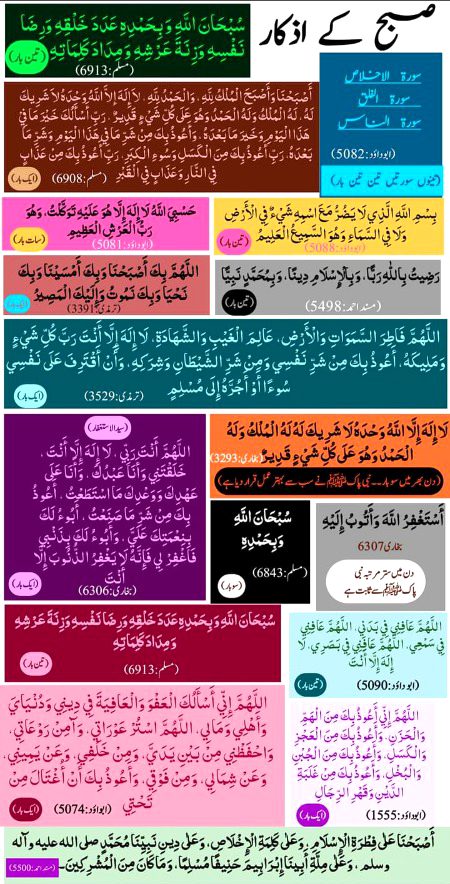 صبح کے اذکار
سُبْحَانَ اللَّهِ وَبِحَمْدِهِ عَدَدَ خَلْقِهِ وَرِضَا
نَفْسِهِ وَزِنَةَ عَرْشِهِ وَمِدَادَ كَلِمَاتِهِ
تین بار
(مسلم:6913)
سورۃ الاخلاص
سورۃ الفلق
سورۃ الناس
(ابوداؤد:5082)
تینوں سورتیں تین تین بار
أَصْبَحْنَا وَأَصْبَحَ الْمُلْكُ لِلَّهِ، وَالْحَمْدُ لِلَّهِ، لَا إِلَهَ إِلَّا اللَّهُ وَحْدَهُ لَا شَرِيكَ
لَهُ، لَهُ الْمُلْكُ وَلَهُ الْحَمْدُ وَهُوَ عَلَى كُلِّ شَيْءٍ قَدِيرٌ، رَبِّ أَسْأَلُكَ خَيْرَ مَا فِي
هَذَا الْيَوْمِ وَخَيْرَ مَا بَعْدَهُ، وَأَعُوذُ بِكَ مِنْ شَرِّ مَا فِي هَذَا الْيَوْمِ وَشَرِّ مَا
بَعْدَهُ، رَبِّ أَعُوذُ بِكَ مِنَ الْكَسَلِ وَسُوءِ الْكِبَرِ، رَبِّ أَعُوذُ بِكَ مِنْ عَذَابٍ
فِي النَّارِ وَعَذَابٍ فِي الْقَبْرِ
ایک بار
(مسلم:6908)
بِسْمِ اللَّهِ الَّذِي لَا يَضُرُّ مَعَ اسْمِهِ شَيْءٌ فِي الْأَرْضِ
وَلَا فِي السَّمَاءِ وَهُوَ السَّمِيعُ الْعَلِيمُ
تین بار
(ابوداؤد:5088)
حَسْبِيَ اللَّهُ لَا إِلَهَ إِلَّا هُوَ عَلَيْهِ تَوَكَّلْتُ، وَهُوَ
رَبُّ الْعَرْشِ الْعَظِيمِ
سات بار
(ابوداؤد:5081)
رَضِيتُ بِاللَّهِ رَبًّا، وَبِالْإِسْلَامِ دِينًا، وَبِمُحَمَّدٍ نَبِيًّا
تین بار
(مسند احمد:5498)
اللَّهُمَّ بِكَ أَصْبَحْنَا وَبِكَ أَمْسَيْنَا وَبِكَ
نَحْيَا وَبِكَ نَمُوتُ وَإِلَيْكَ الْمَصِيرُ
ایک بار
(ترمذی:3391)
اللَّهُمَّ فَاطِرَ السَّمَوَاتِ وَالْأَرْضِ، عَالِمَ الْغَيْبِ وَالشَّهَادَةِ، لَا إِلَهَ إِلَّا أَنْتَ رَبَّ كُلِّ شَيْءٍ
وَمَلِيكَهُ، أَعُوذُ بِكَ مِنْ شَرِّ نَفْسِي وَمِنْ شَرِّ الشَّيْطَانِ وَشِرْكِهِ، وَأَنْ أَقْتَرِفَ عَلَى نَفْسِي
سُوءًا أَوْ أَجُرَّهُ إِلَى مُسْلِمٍ
ایک بار
(ترمذی:3529)
لَا إِلَهَ إِلَّا اللَّهُ وَحْدَهُ لَا شَرِيكَ لَهُ لَهُ الْمُلْكُ وَلَهُ
الْحَمْدُ وَهُوَ عَلَى كُلِّ شَيْءٍ قَدِيرٌ
(بخاری:3293)
(دن بھر میں سو بار۔۔ نبی پاک ﷺ نے سب سے بہتر عمل قرار دیا ہے)
سید الاستغفار
اللَّهُمَّ أَنْتَ رَبِّي، لَا إِلَهَ إِلَّا أَنْتَ،
خَلَقْتَنِي وَأَنَا عَبْدُكَ، وَأَنَا عَلَى
عَهْدِكَ وَوَعْدِكَ مَا اسْتَطَعْتُ، أَعُوذُ
بِكَ مِنْ شَرِّ مَا صَنَعْتُ، أَبُوءُ لَكَ
بِنِعْمَتِكَ عَلَيَّ، وَأَبُوءُ لَكَ بِذَنْبِي
فَاغْفِرْ لِي فَإِنَّهُ لَا يَغْفِرُ الذُّنُوبَ إِلَّا
أَنْتَ
ایک بار
(بخاری:6306)
سُبْحَانَ اللَّهِ
وَبِحَمْدِهِ
(مسلم:6843)
سو بار
أَسْتَغْفِرُ اللَّهَ وَأَتُوبُ إِلَيْهِ
بخاری 6307
دن میں ستر مرتبہ نبی
پاک ﷺ سے ثابت ہے
سُبْحَانَ اللَّهِ وَبِحَمْدِهِ عَدَدَ خَلْقِهِ وَرِضَا نَفْسِهِ وَزِنَةَ عَرْشِهِ
وَمِدَادَ كَلِمَاتِهِ
تین بار
(مسلم:6913)
اللَّهُمَّ عَافِنِي فِي بَدَنِي، اللَّهُمَّ عَافِنِي
فِي سَمْعِي، اللَّهُمَّ عَافِنِي فِي بَصَرِي، لَا
إِلَهَ إِلَّا أَنْتَ
تین بار
(ابوداؤد:5090)
اللَّهُمَّ إِنِّي أَسْأَلُكَ الْعَفْوَ وَالْعَافِيَةَ فِي دِينِي وَدُنْيَايَ
وَأَهْلِي وَمَالِي، اللَّهُمَّ اسْتُرْ عَوْرَاتِي، وَآمِنْ رَوْعَاتِي،
وَاحْفَظْنِي مِنْ بَيْنِ يَدَيَّ، وَمِنْ خَلْفِي، وَعَنْ يَمِينِي،
وَعَنْ شِمَالِي، وَمِنْ فَوْقِي، وَأَعُوذُ بِكَ أَنْ أُغْتَالَ مِنْ
تَحْتِي
ایک بار
(ابوداؤد:5074)
اللَّهُمَّ إِنِّي أَعُوذُ بِكَ مِنَ الْهَمِّ
وَالْحَزَنِ، وَأَعُوذُ بِكَ مِنَ الْعَجْزِ
وَالْكَسَلِ، وَأَعُوذُ بِكَ مِنَ الْجُبْنِ
وَالْبُخْلِ، وَأَعُوذُ بِكَ مِنْ غَلَبَةِ
الدَّيْنِ وَقَهْرِ الرِّجَالِ
ایک بار
(ابوداؤد:1555)
أَصْبَحْنَا عَلَى فِطْرَةِ الْإِسْلَامِ، وَعَلَى كَلِمَةِ الْإِخْلَاصِ، وَعَلَى دِينِ نَبِيِّنَا مُحَمَّدٍ صلى الله عليه وآله
وسلم، وَعَلَى مِلَّةِ أَبِينَا إِبْرَاهِيمَ حَنِيفًا مُسْلِمًا، وَمَا كَانَ مِنَ الْمُشْرِكِينَ۔
(مسند احمد:5500)